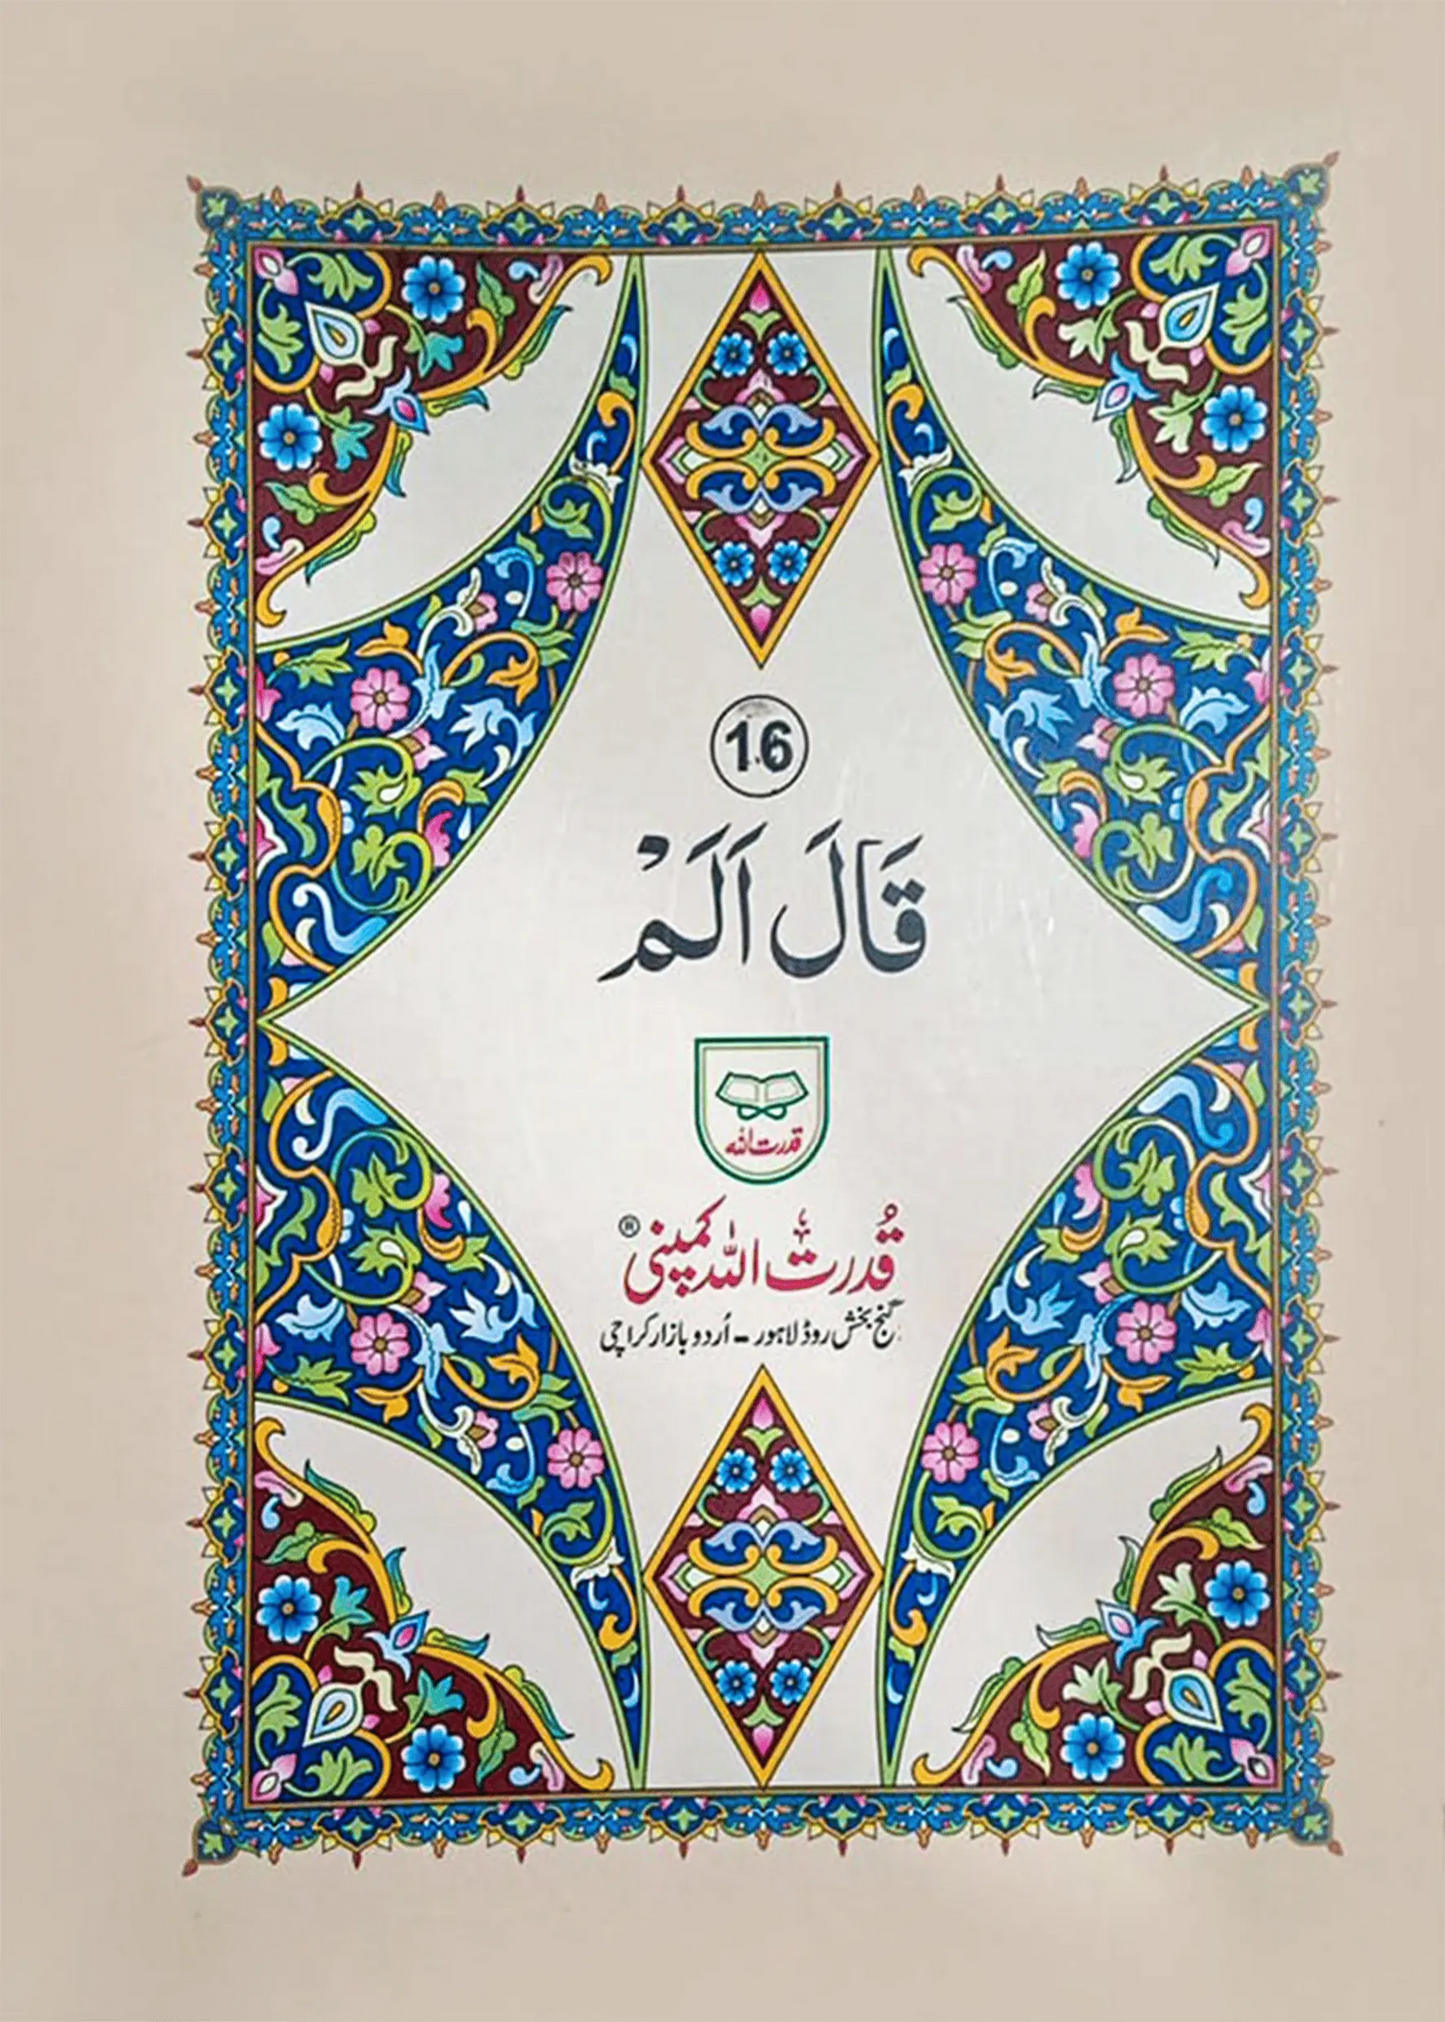 16
قَالَ اَلَمْ
قدرت اللہ
قُدرت اللہ کمپنی ®
گنج بخش روڈ لاہور - اُردو بازار کراچی